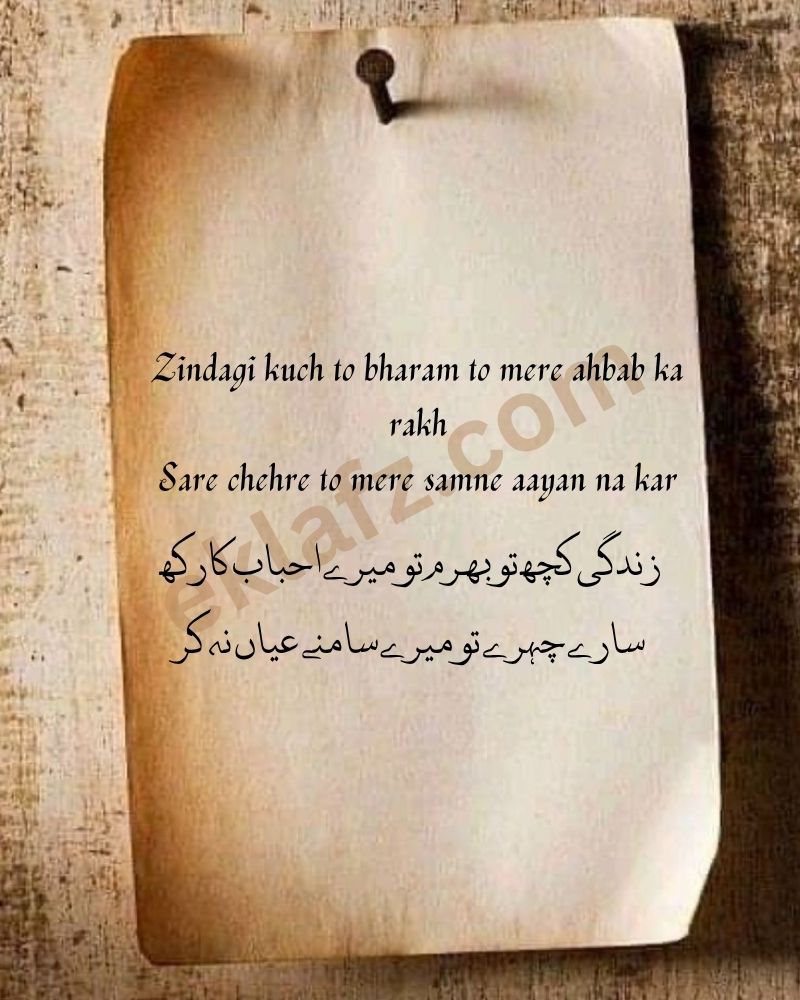 Zindagi kuch to bharam to mere ahbab ka
rakh
Sare chehre to mere samne aayan na kar
زندگی کچھ تو بھرم تو میرے احباب کا رکھ
سارے چہرے تو میرے سامنے عیاں نہ کر
eklafz.com